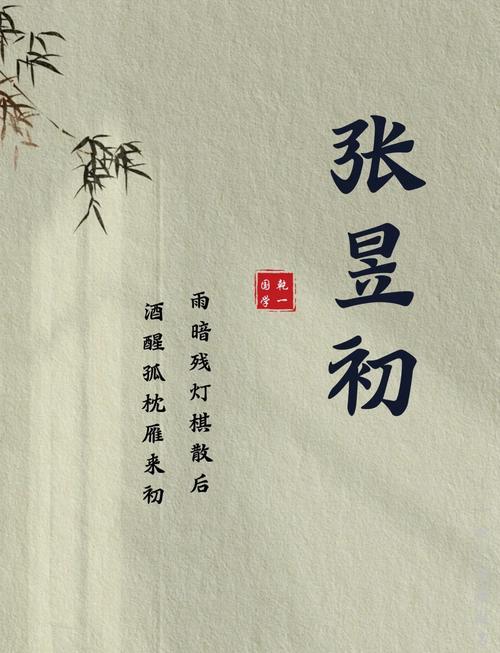 张昱初
乾一
国学
雨暗残灯棋散后
酒醒孤枕雁来初